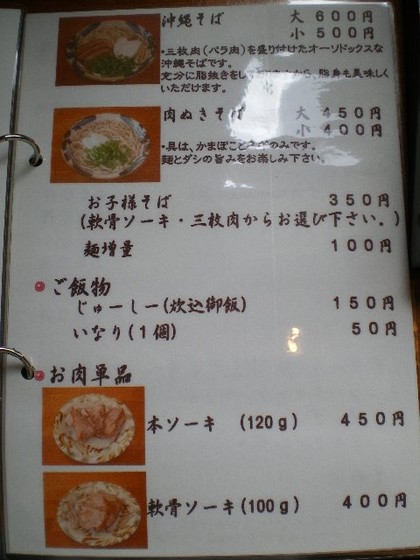 沖縄そば 大 600円
小 500円
・三枚肉(バラ肉)を盛り付けたオーソドックスな
沖縄そばです。
充分に脂抜きをし 脂身も美味しく
いただけます。
肉ぬきそば 大 450円
小 400円
・具は、かまぼことネギのみです。
麺とダシの旨みをお楽しみ下さい。
お子様そば 350円
(軟骨ソーキ・三枚肉からお選び下さい。)
麺増量 100円
ご飯物
じゅーしー(炊込御飯) 150円
いなり(1個) 50円
お肉単品
本ソーキ (120g) 450円
軟骨ソーキ(100g) 400円